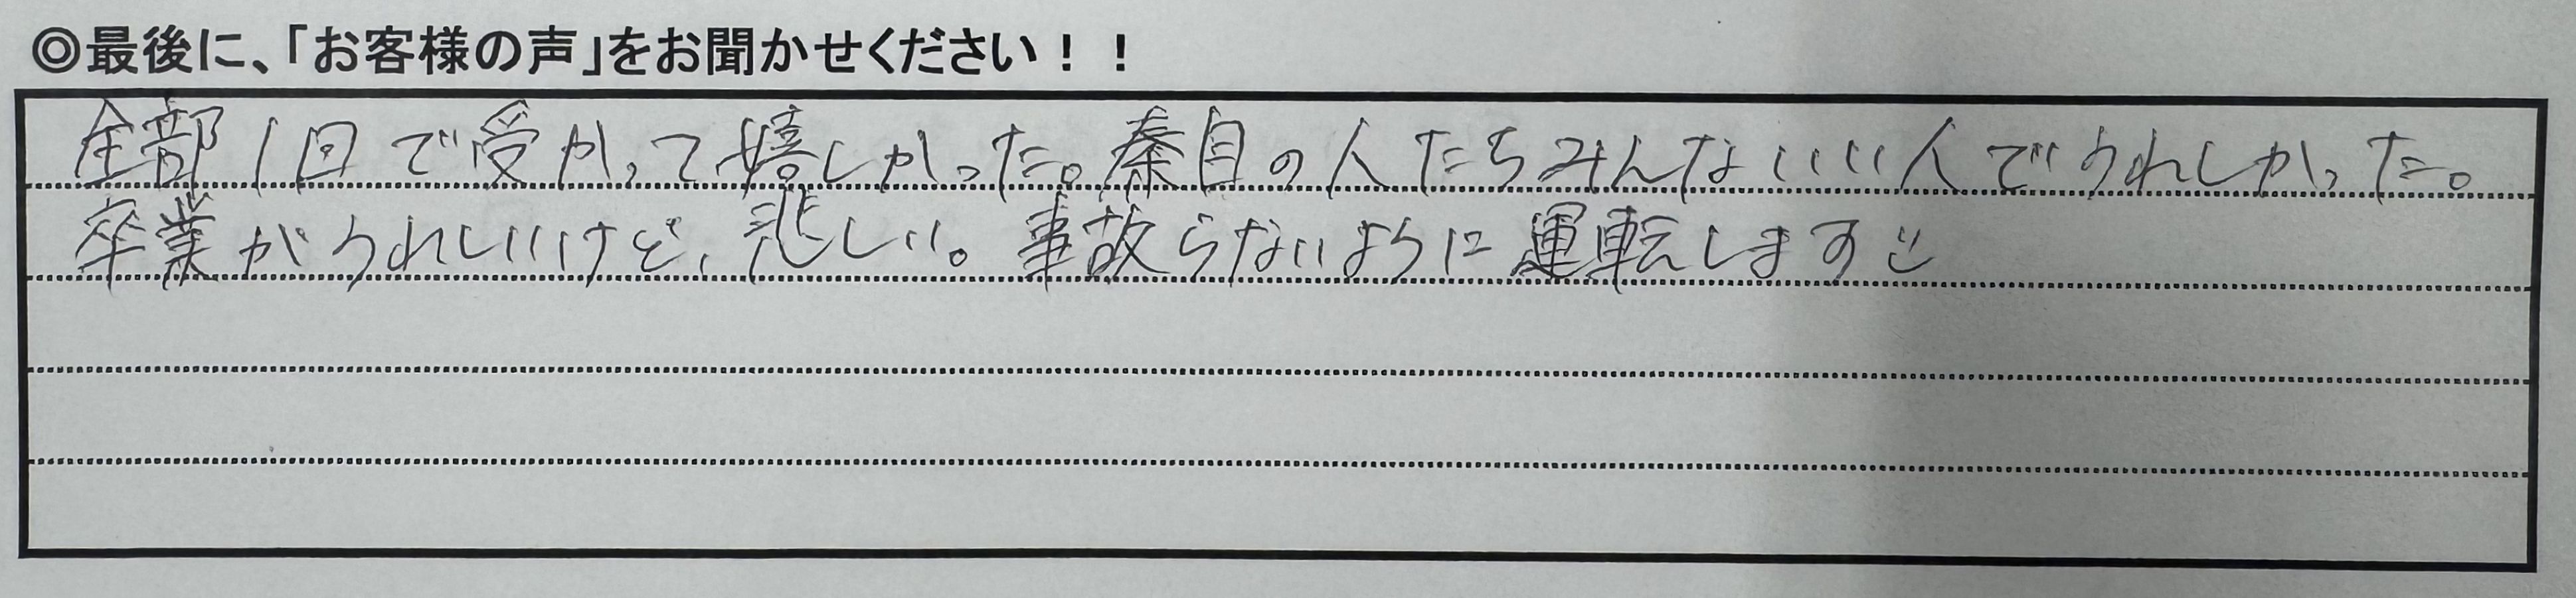 ◎最後に、「お客様の声」をお聞かせください！！
全部1回で受かって嬉しかった。秦自の人たちみんないい人でうれしかった。
卒業がうれしいけど、悲しい。事故らないように運転します